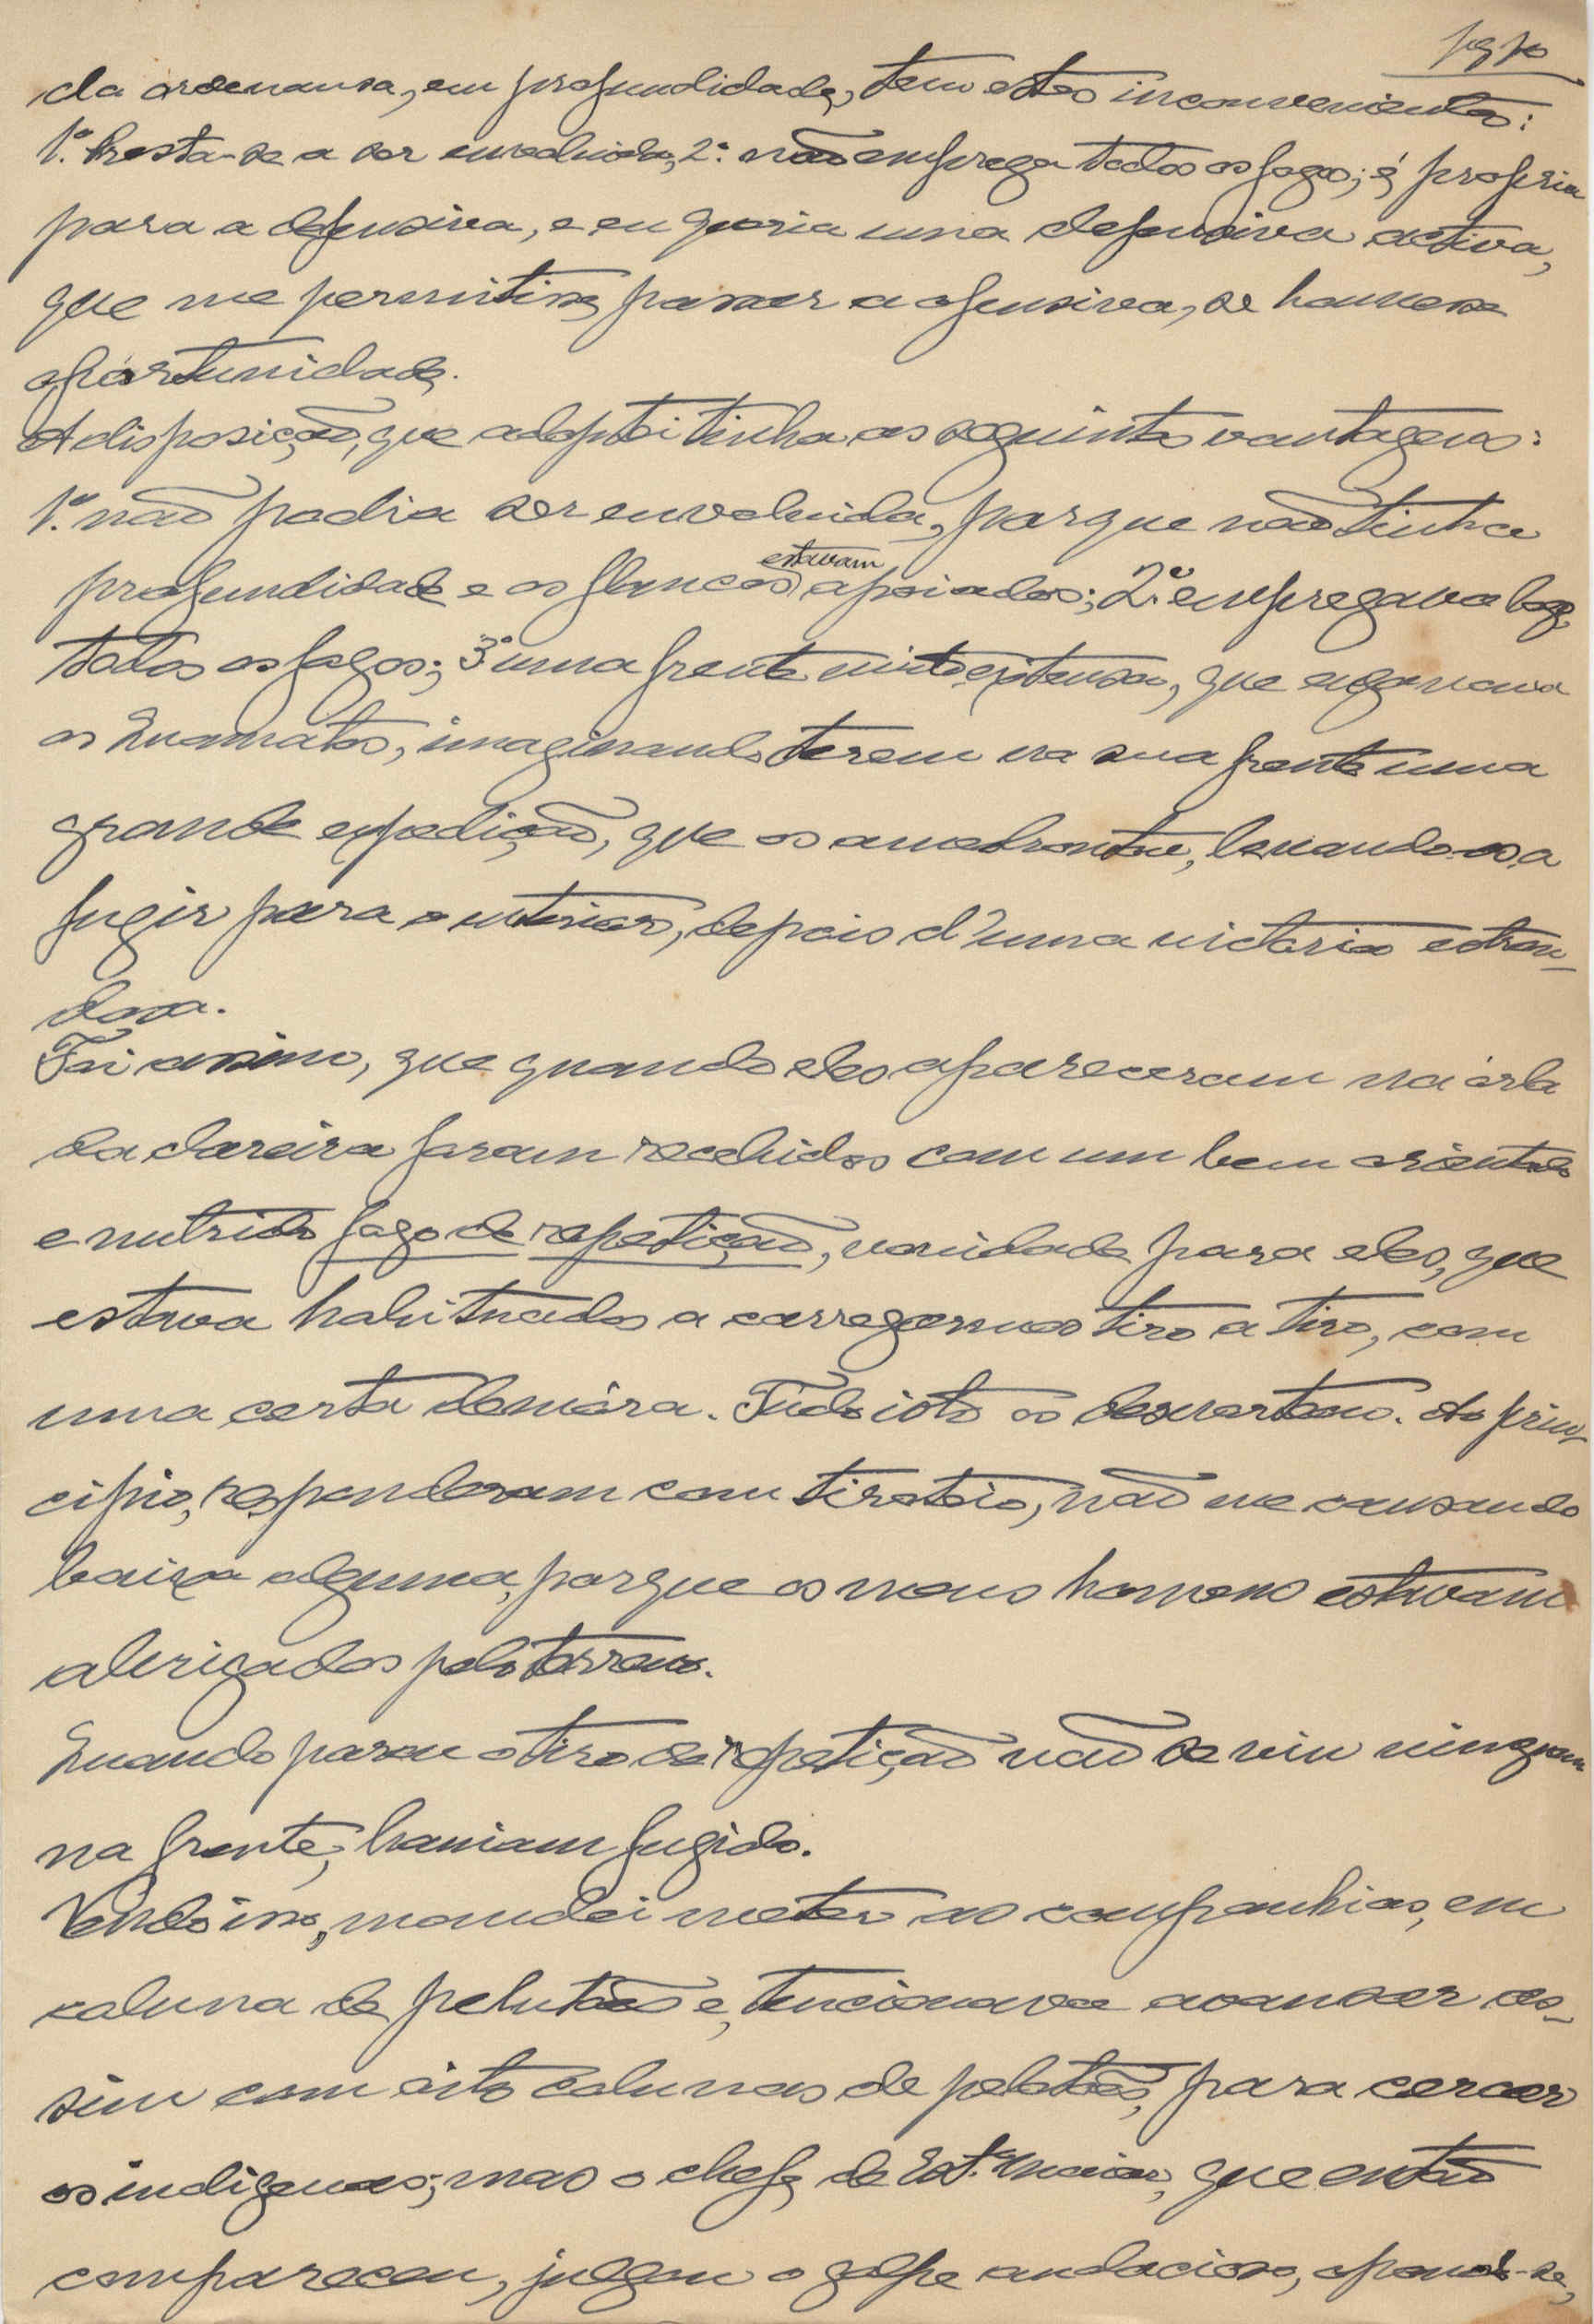 da ordenansa, em profundidade, tem estes inconvenientes:
1.º Presta-se a ser envolvida, 2.º não emprega todos os fogos; é propria
para a defensiva, e eu queria uma defensiva activa,
que me permitisse passar a ofensiva, se houvesse
opórtunidade.
A disposição, que adoptei tinha as seguintes vantagens:
1.º não podia ser envolvida, porque não tinha
profundidade e os flancos estavam apoiados; 2.º empregava logo
todos os fogos; 3º uma frente muito extensa, que enganava
os Quamatos, imaginando terem na sua frente uma
grande expedição, que os amedrontou, levando-os a
fugir para o interior, depois d'uma victoria estron-
dosa.
Foi assim, que quando eles apareceram na órla
da clareira foram recebidos com um bem orientado
e nutrido fogo de repetição, novidade para eles, que
estava habituados a carregarmos tiro a tiro, com
uma certa demóra. Tudo isto os desnorteou. Ao prin-
cipio, responderam com tiroteio, não me causando
baixa alguma, porque os meus homens estavam
abrigados pelo terreno.
Quando parou o tiro de repetição não se viu ninguem
na frente; haviam fugido.
Vendo isso, mandei meter as companhias, em
coluna de pelutões e, tencionava avansar as-
sim com oito colunas de pelotões, para cercar
os indigenas; mas o chefe de Est.º Maior, que então
compareceu, julgou o golpe audacioso, opondo-se,